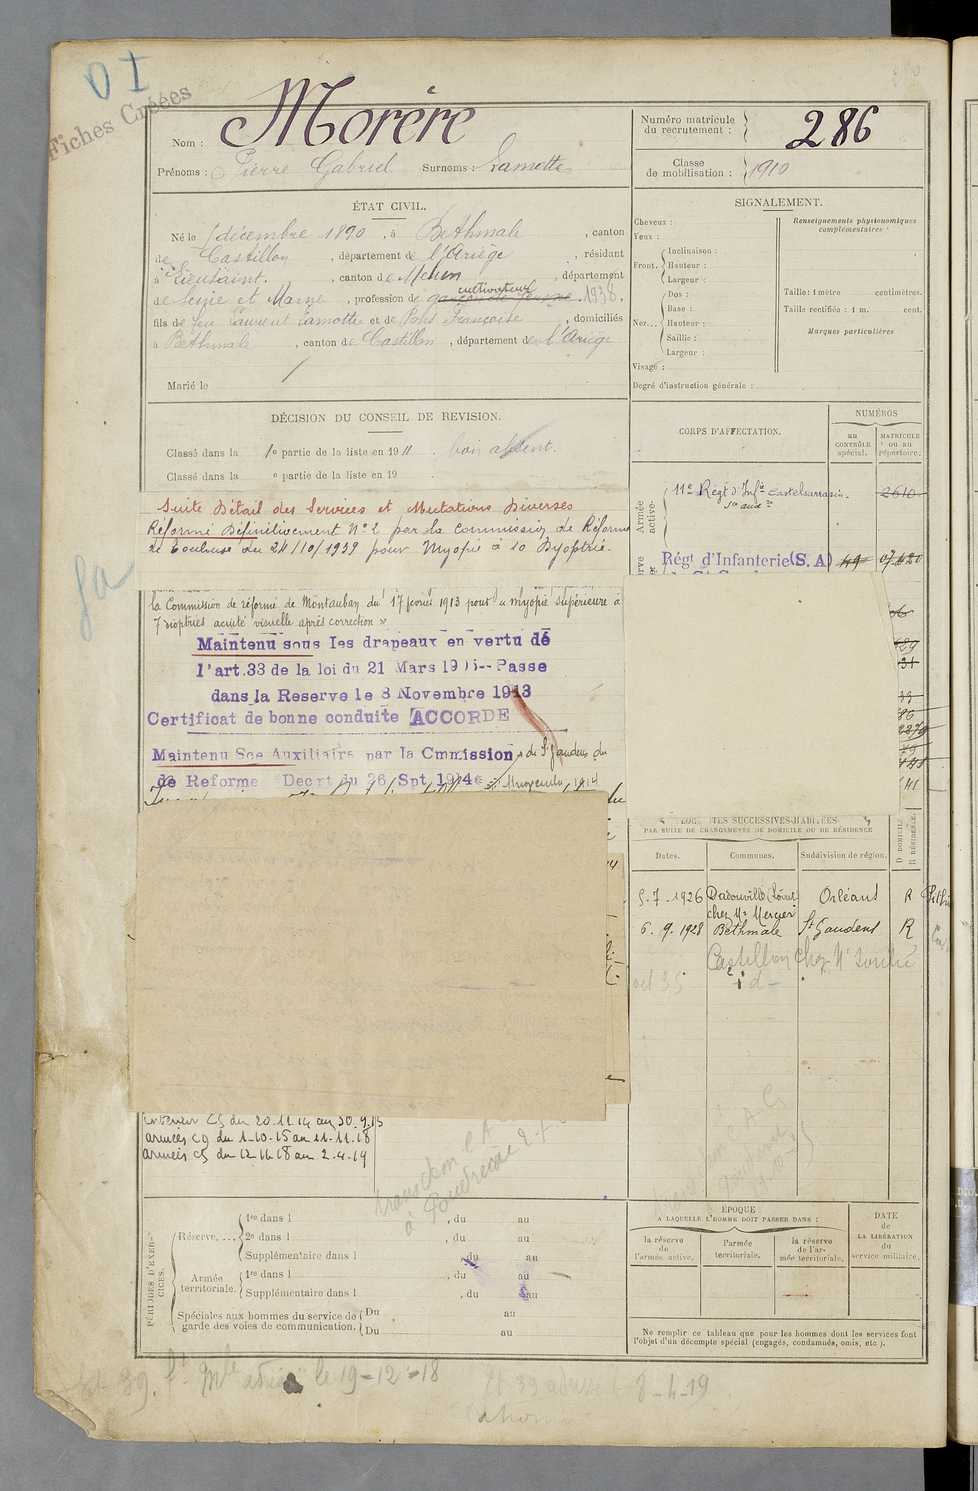 O I
Fiches Créées
Nom : Morère
Prénoms : Pierre Gabriel Surnoms : Lamotte
Numéro matricule
du recrutement : 286
Classe
de mobilisation : 1910
ÉTAT CIVIL.
Né le 1 décembre 1890, à Bethmale, canton
de Castillon, département de l'Ariège, résidant
à Lieusaint, canton de Melun, département
cultivateur
de Seine et Marne, profession de garçon de ferme. 1938.
fils de feu Laurent Lamotte et de Pons Françoise, domiciliés
à Bethmale, canton de Castillon, département de l'Ariège
Marié le
SIGNALEMENT.
Cheveux :
Yeux :
Front. Inclinaison :
Hauteur :
Largeur :
Nez... Dos :
Base :
Hauteur :
Saillie :
Largeur :
Visage :
Degré d'instruction générale :
Renseignements physionomiques
complémentaires :
Taille : 1 mètre centimètres.
Taille rectifiée : 1 m. cent.
Marques particulières
DÉCISION DU CONSEIL DE REVISION.
Classé dans la 1e partie de la liste en 1911. bon absent.
Classé dans la e partie de la liste en 19
CORPS D'AFFECTATION.
NUMÉROS
au
CONTRÔLE
spécial.
MATRICULE
ou au
répertoire.
Armée
active.
11e Régt d'Infie Castelsarrasin. 2610
Régt d'Infanterie (S. A) 49 07420
Suite Détail des Services et Mutations Diverses
Réformé Définitivement N° 2 par la Commission de Réforme
de Toulouse du 24/10/1939 pour Myopie à 10 Dyoptrie.
la Commission de réforme de Montauban du 17 février 1913 pour "myopie supérieure à
7 dioptries acuité visuelle après correction"
Maintenu sous les drapeaux en vertu de
l'art.33 de la loi du 21 Mars 1905-- Passe
dans la Reserve le 8 Novembre 1913
Certificat de bonne conduite ACCORDE
Maintenu Sce Auxiliaire par la Cmmission de St Gaudens du
de Reforme Decrt du 26 Spt 1914
LOCALITÉS SUCCESSIVES HABITÉES
PAR SUITE DE CHANGEMENTS DE DOMICILE OU DE RÉSIDENCE
Dates. Communes. Subdivision de région. D DOMICILE R RÉSIDENCE.
5-7-1926 Dadonville (Loiret) Orléans R
chez Mr Mercier
6. 9. 1928 Bethmale St Gaudens R
Castillon chez Mr
oct 35 - id -
intérieur CS du 20.11.14 au 30.9.15
armées CS du 1-10-15 au 11-11-18
armées CS du 12-11-18 au 2-4-19
PÉRIODES D'EXERCICES.
Réserve.... 1re dans l , du au
2e dans l , du au
Supplémentaire dans l , du au
Armée
territoriale. 1re dans l , du au
Supplémentaire dans l , du au
Spéciales aux hommes du service de
garde des voies de communication. Du au
Du au
ÉPOQUE
A LAQUELLE L'HOMME DOIT PASSER DANS :
la réserve
de
l'armée active.
l'armée
territoriale.
la réserve
de l'ar-
mée territoriale.
DATE
de
LA LIBÉRATION
du
service militaire.
Ne remplir ce tableau que pour les hommes dont les services font
l'objet d'un décompte spécial (engagés, condamnés, omis, etc.).
le 19-12-18
8-4-19